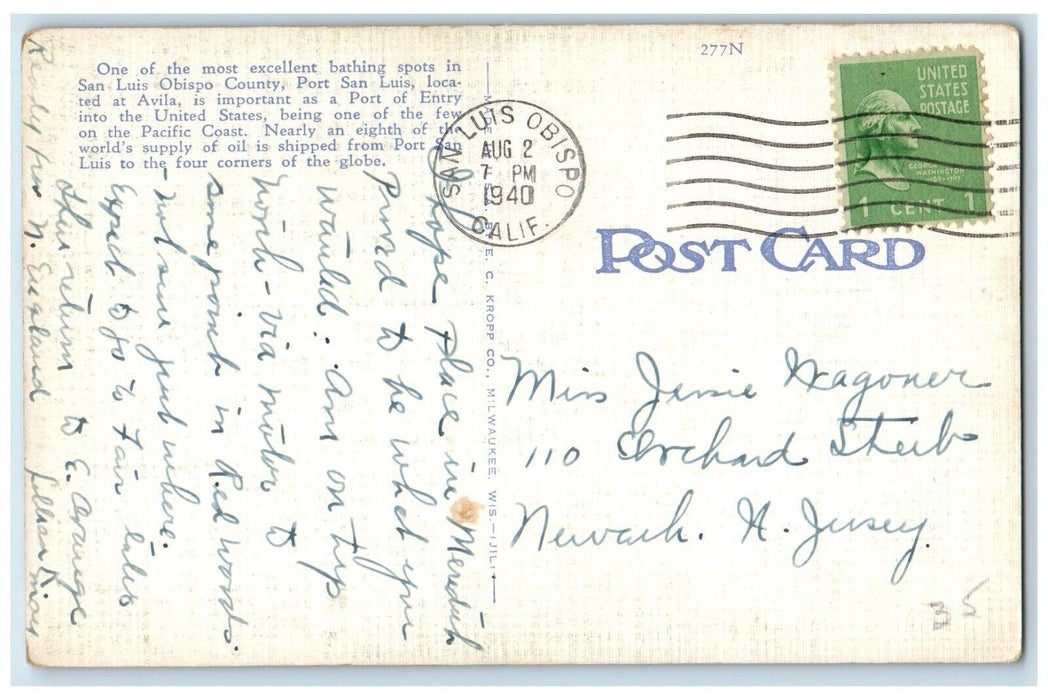 277N
One of the most excellent bathing spots in
San Luis Obispo County, Port San Luis, loca-
ted at Avila, is important as a Port of Entry
into the United States, being one of the few
on the Pacific Coast. Nearly an eighth of the
world's supply of oil is shipped from Port San
Luis to the four corners of the globe.
SAN LUIS OBISPO
AUG 2
7 PM
1940
CALIF.
UNITED
STATES
POSTAGE
GEORGE
WASHINGTON
1789-1797
1 CENT 1
POST CARD
MADE BY E. C. KROPP CO., MILWAUKEE, WIS.
I hope place in Meredith
proved to be what you
wanted. Am on trip
north - via motor to
some point in Red woods.
Not sure just where.
Expect to go to Fair later
then return to E. Orange
Ready for N. England Lillian
Miss Jessie Wagoner
110 Orchard Street
Newark. N. Jersey.
35